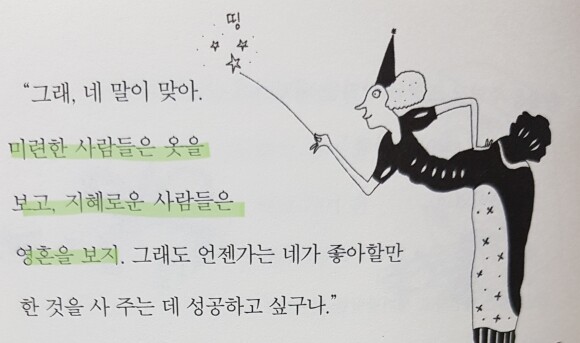 띵
“그래, 네 말이 맞아.
미련한 사람들은 옷을
보고, 지혜로운 사람들은
영혼을 보지. 그래도 언젠가는 네가 좋아할만
한 것을 사 주는 데 성공하고 싶구나.”